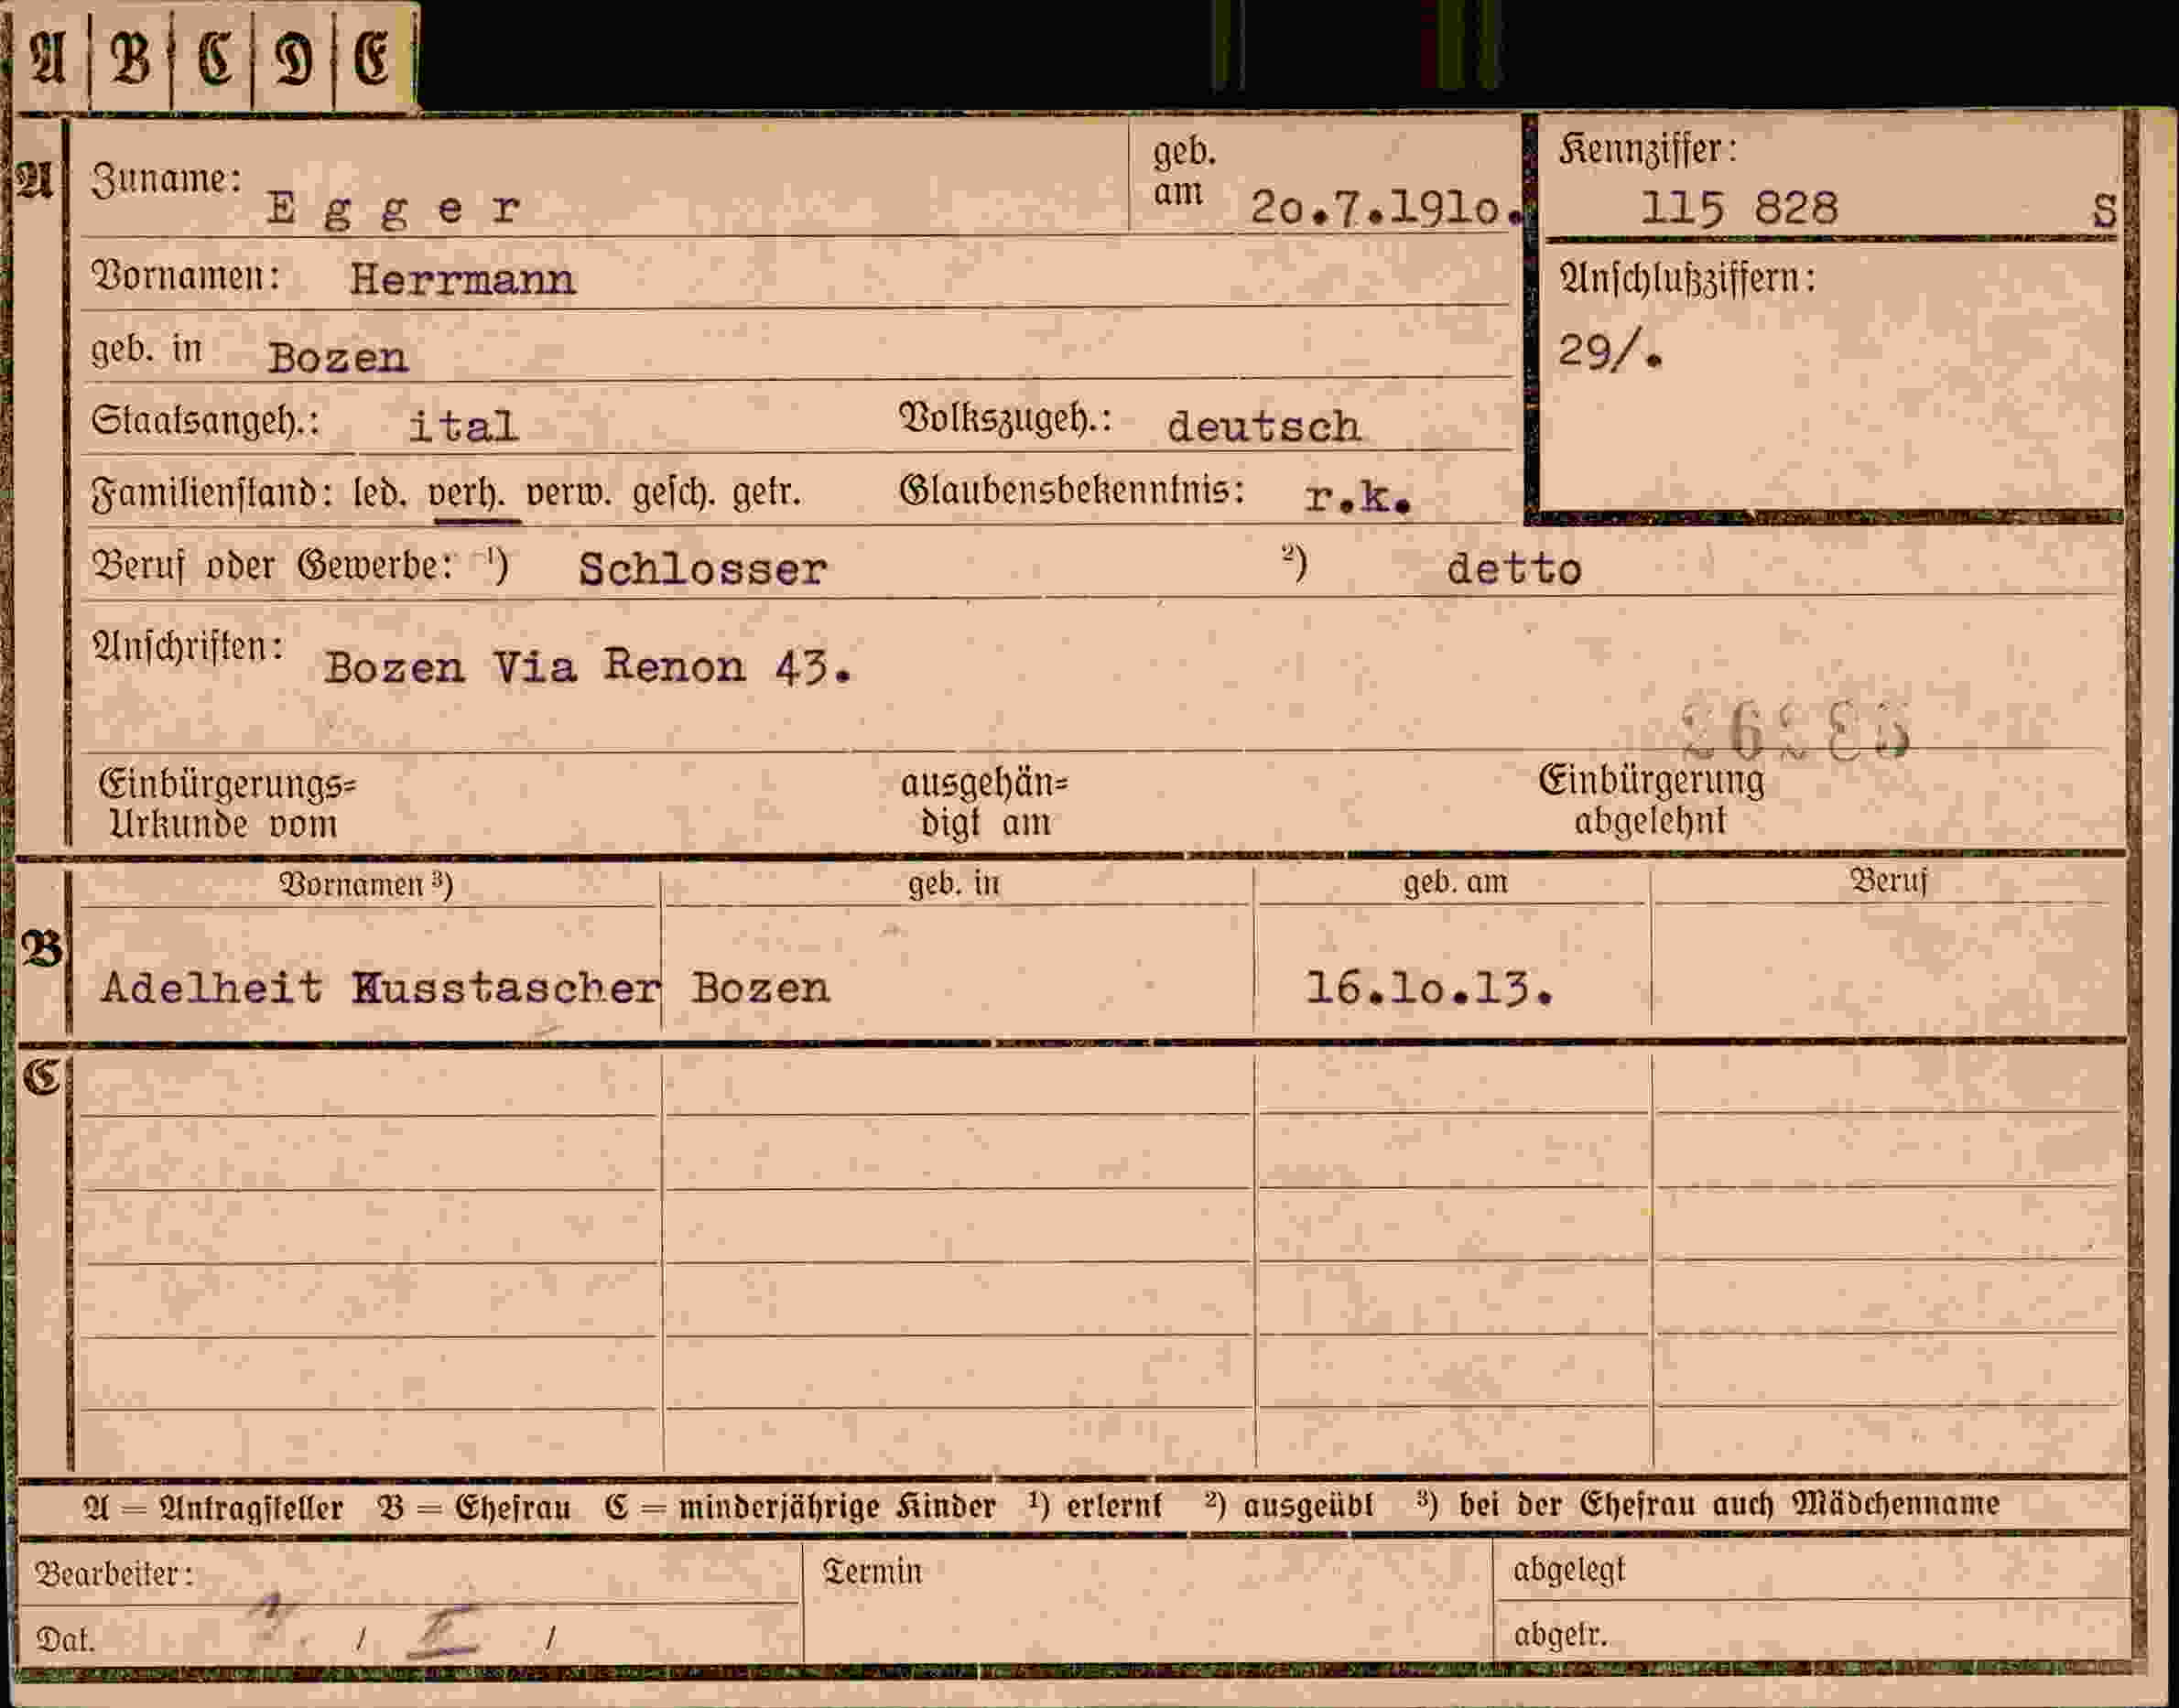 A B C D E
A Zuname: Egger geb. am 2o.7.191o. Kennziffer: 115 828 S
Vornamen: Herrmann Anschlußziffern:
geb. in Bozen 29/.
Staatsangeh.: ital Volkszugeh.: deutsch
Familienstand: led. verh. verw. gesch. getr. Glaubensbekenntnis: r.k.
Beruf oder Gewerbe: ¹) Schlosser ²) detto
Anschriften: Bozen Via Renon 43.
Einbürgerungs= ausgehän= Einbürgerung
Urkunde vom digt am abgelehnt
Vornamen ³) geb. in geb. am Beruf
B Adelheit Kusstascher Bozen 16.1o.13.
C
A = Antragsteller B = Ehefrau C = minderjährige Kinder ¹) erlernt ²) ausgeübt ³) bei der Ehefrau auch Mädchenname
Bearbeiter: Termin abgelegt
Dat. / / abgetr.